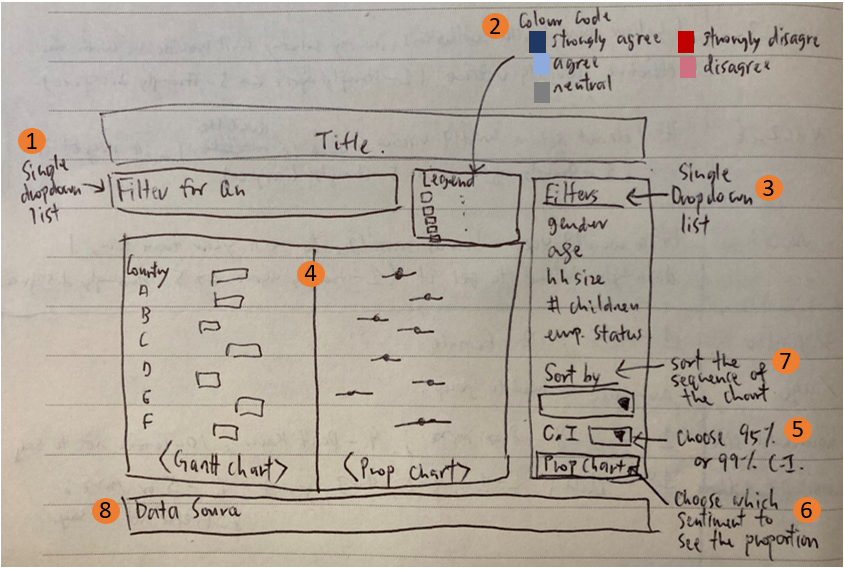 2 Colour Code
strongly agree
strongly disagre
agree
disagree
neutral
Title.
1
Single
dropdown
list
Filter for Qn
Legend
Filters
gender
age
hh size
# children
emp. status
Single
Dropdown
list
3
Country
A
B
C
D
E
F
4
<Gantt chart>
<Prop chart>
Sort by
sort the
sequence of
the chart
7
C.I
Choose 95%
or 99% C.I.
5
Prop chart
Choose which
sentiment to
see the proportion
6
8
Data Soura